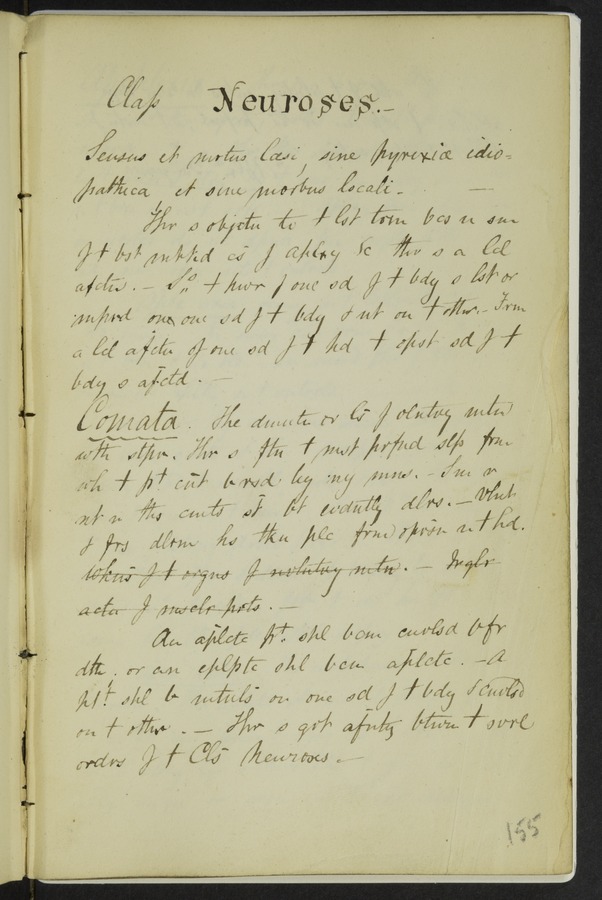 Claſs Neuroses.—
Sensus et motus læsi, sine pyrexia idio=
pathica et sine morbus locali. —
Thr s objctn to t lst trm bcs n sm
f t bst mrkd cs f aplxy &c thr s a lcl
afctn. — t pwr f one sd f t bdy s lst or
imprd one on one sd f t bdy & nt on t othr. — Frm
a lcl afctn of one sd f t hd t opst sd f t
bdy s afctd. —
Comata. The dimntn or ls f vlntry mtn
wth stpr. Thr s ftn t mst prfnd slp frm
wh t pt cnt b rsd by ny mns. — Sm r
nt n ths cmts st bt evdntly dlrs. — Vlnt
& frs dlrm hs tkn plc frm oprsn n t hd.
f t orgns f nvlntry mtn. — Irglr
actn f msclr prts. —
An aplctc pt. shl bcm cnvlsd bfr
dth. or an eplptc shl bcm aplctc. — A
pt. shl b mtnls on one sd f t bdy & cnvlsd
on t othr. — Thr s grt afnty btwn t svrl
ordrs f t Cls Neuroses. —
155